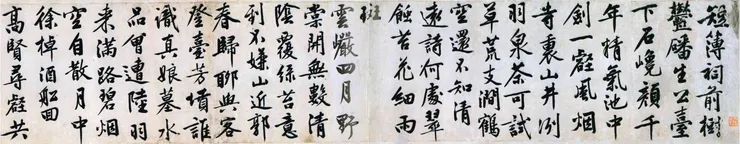 短簿祠前樹
鬱蟠生公臺
下石巉顏千
年精氣池中
劍一壑風烟
寺裏山井冽
羽泉茶可試
草荒支澗鶴
空還不知清
遠詩何處翠
蝕苔花細雨
斑
雲巖四月野
棠開無數清
陰覆綠苔意
到不嫌山近郭
春歸聊與客
登臺芳墳誰
識真娘墓水
品曾遭陸羽
來滿路碧烟
空自散月中
徐棹酒船回
高賢尋壑共